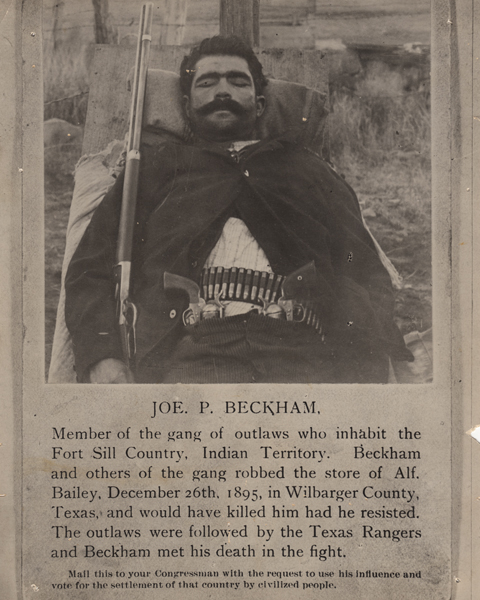 JOE. P. BECKHAM,
Member of the gang of outlaws who inhabit the
Fort Sill Country, Indian Territory. Beckham
and others of the gang robbed the store of Alf.
Bailey, December 26th, 1895, in Wilbarger County,
Texas, and would have killed him had he resisted.
The outlaws were followed by the Texas Rangers
and Beckham met his death in the fight.
Mail this to your Congressman with the request to use his influence and
vote for the settlement of that country by civilized people.